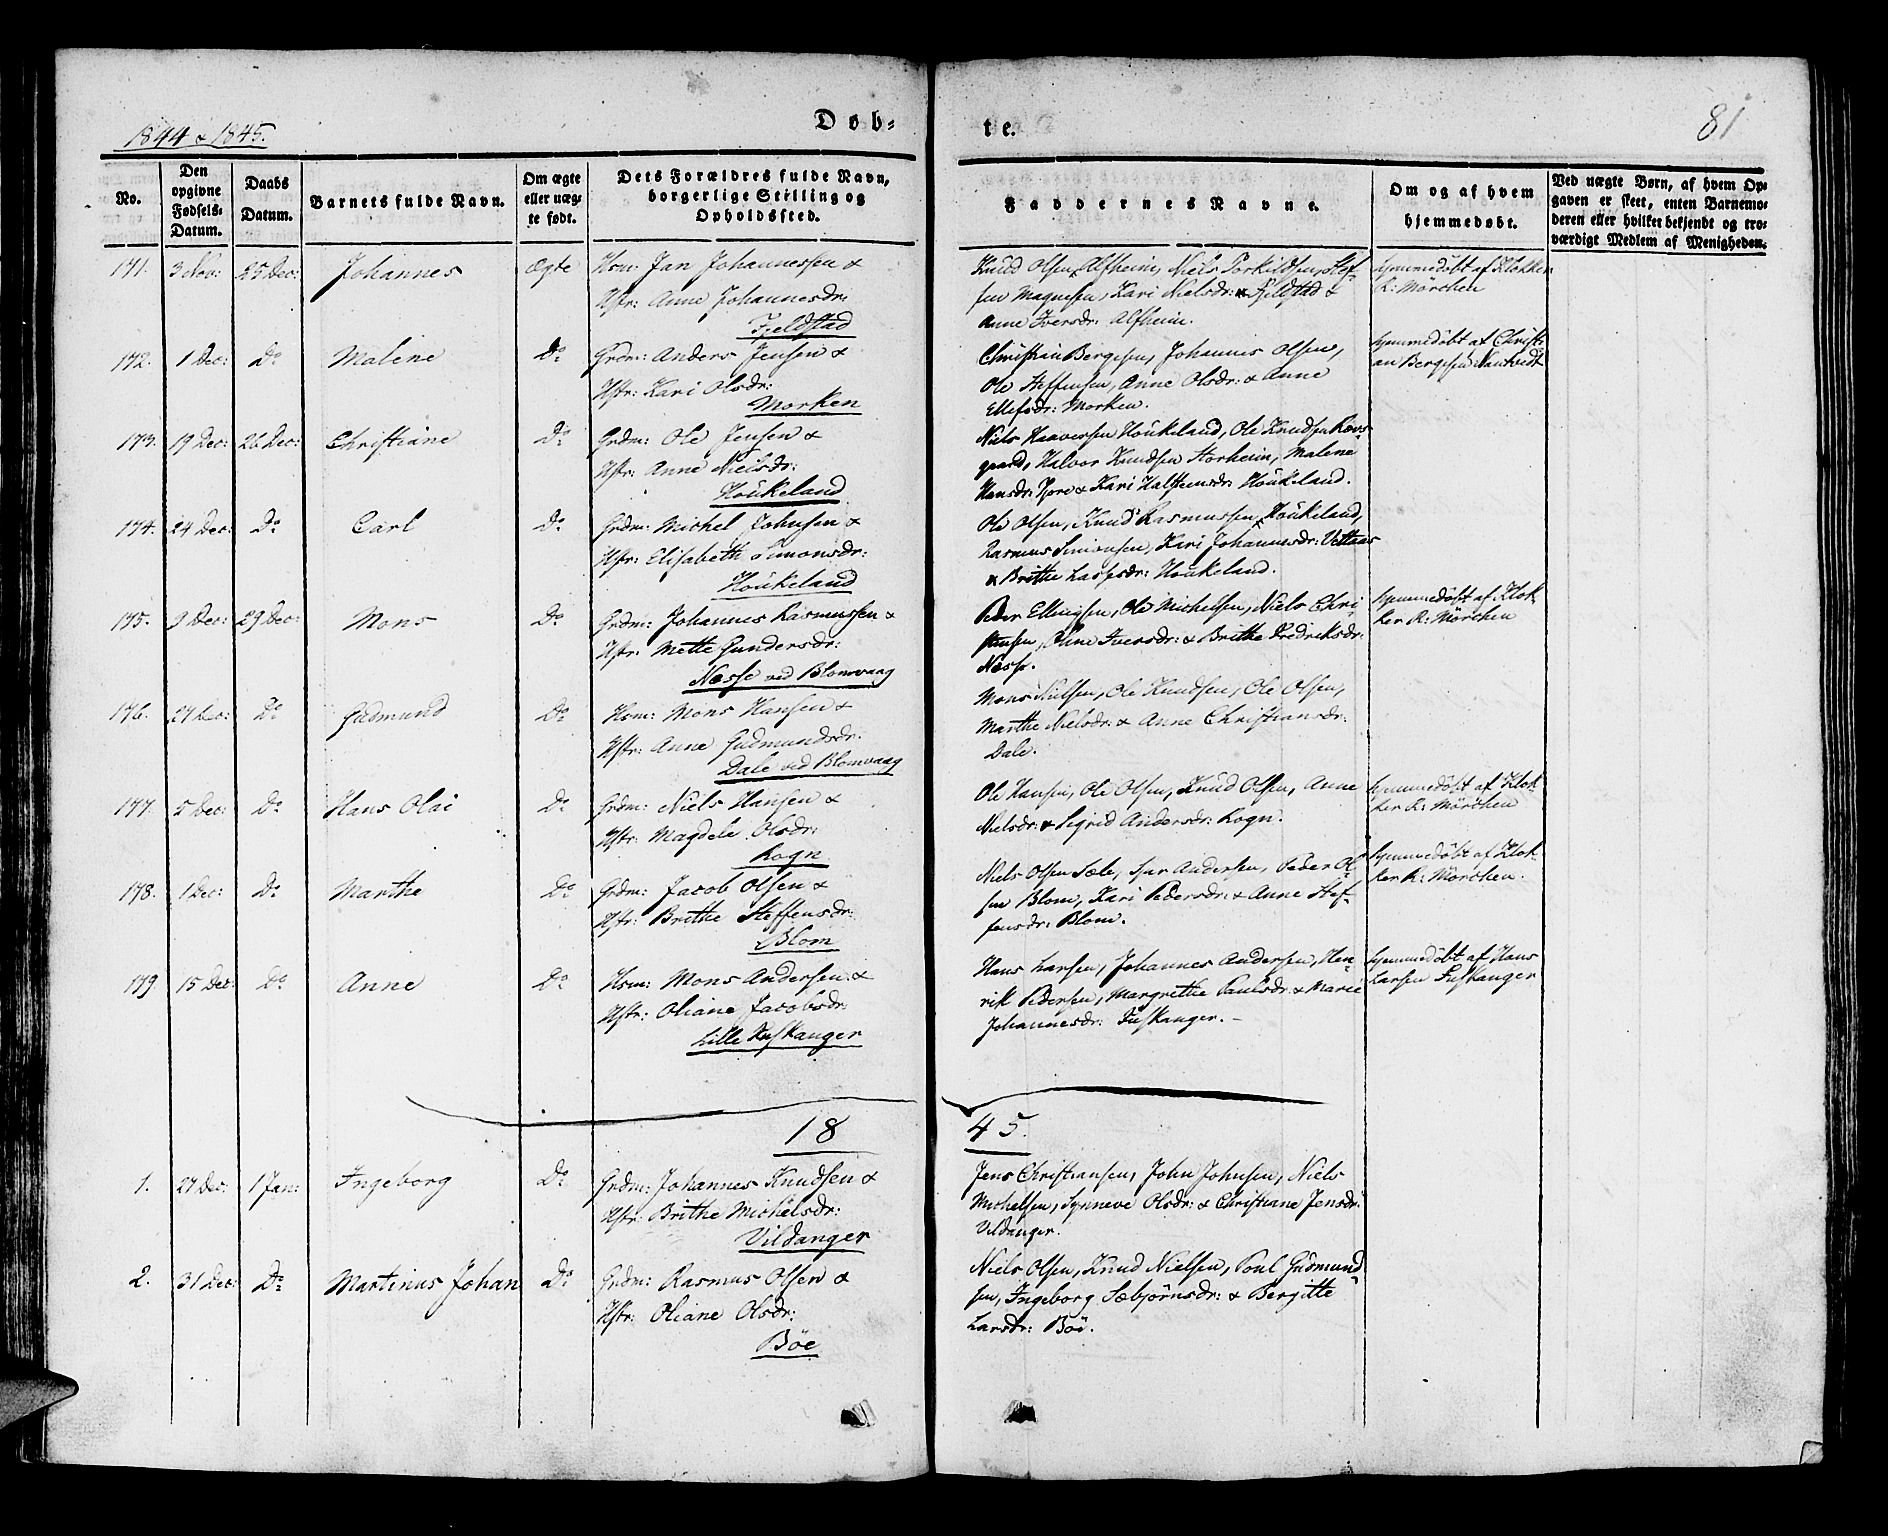 1844 & 1845.
Døb-
te.
81
No.
Den opgivne Fødsels-Datum.
Daabs Datum.
Barnets fulde Navn.
Om ægte eller uægte født.
Dets Forældres fulde Navn, borgerlige Stilling og Opholdssted.
Faddernes Navne.
Om og af hvem hjemmedøbt.
Ved uægte Børn, af hvem Opgaven er skeet, enten Barnemoderen eller hvilket bekjendt og troværdigt Medlem af Menigheden.
171. 3 Nov: 25 Dec: Johannes ægte Hsm: Jan Johannessen &
Hstr: Anne Johannesdr:
Fjeldstad
Knud Olsen Alfheim, Niels Torkildsen, Stef-
fen Magnesen, Kari Nielsdr: Fjeldstad &
Anne Iversdr: Alfheim.
hjemmedøbt af Klokker
R: Mörchen
172. 1 Dec: Do Malene Do Grdm: Anders Jensen &
Hstr: Kari Olsdr:
Morken
Christian Bergesen, Johannes Olsen,
Ole Steffensen, Anne Olsdr: & Anne
Ellefsdr: Morken.
hjemmedøbt af Christi-
an Bergesen Nautvedt
173. 19 Dec: 26 Dec: Christiane Do Grdm: Ole Jensen &
Hstr: Anne Nielsdr:
Houkeland
Niels Haaversen Houkeland, Ole Knudsen Røvs-
gaard, Halvor Knudsen Storheim, Malene
Hansdr: & Kari Halsteensdr: Houkeland.
174. 24 Dec: Do Carl Do Grdm: Michel Johnsen &
Hstr: Elisabeth Simonsdr:
Houkeland
Ole Olsen, Knud Rasmussen, Houkeland,
Rasmus Simonsen, Kari Johannesdr: Vettaas
& Brithe Lassesdr: Houkeland.
175. 9 Dec: 29 Dec: Mons Do Grdm: Johannes Rasmussen &
Hstr: Mette Gundersdr:
Næsse ved Blomvaag
Peder Ellingsen, Ole Michelsen, Niels Chri-
stensen, Anne Iversdr: & Brithe Fredriksdr:
Næsse.
hjemmedøbt af Klok-
ker R: Mörchen
176. 27 Dec: Do Gudmund Do Hsm: Mons Hansen &
Hstr: Anne Gudmundsdr:
Dale ved Blomvaag
Mons Nielsen, Ole Knudsen, Ole Olsen,
Marthe Nielsdr: & Anne Christiansdr:
Dale.
177. 5 Dec: Do Hans Olai Do Grdm: Niels Hansen &
Hstr: Magdele Olsdr:
Rogn
Ole Hansen, Ole Olsen, Knud Olsen, Anne
Nielsdr: & Sigrid Andersdr: Rogn.
hjemmedøbt af Klok-
ker R: Mörchen
178. 1 Dec: Do Marthe Do Grdm: Jacob Olsen &
Hstr: Brithe Steffensdr:
Blom
Niels Olsen Sæle, Ivar Andersen, Peder Ol-
sen Blom, Kari Pedersdr: & Anne Stef-
fensdr: Blom.
hjemmedøbt af Klok-
ker R: Mörchen.
179 15 Dec: Do Anne Do Hsm: Mons Andersen &
Hstr: Oliane Jacobsdr:
Lille Fuskanger
Hans Larsen, Johannes Andersen, Hen-
rik Pedersen, Margrethe Paulsdr: & Marie
Johannesdr: Fuskanger. -
hjemmedøbt af Hans
Larsen Fuskanger
18
45.
1. 27 Dec: 1 Jan: Ingeborg Do Grdm: Johannes Knudsen &
Hstr: Brithe Michelsdr:
Vildanger
Jens Christiansen, John Johnsen, Niels
Michelsen, Synneve Olsdr: & Christiane Jensdr:
Vildanger.
2. 31 Dec: Do Martinus Johan Do Grdm: Rasmus Olsen &
Hstr: Oliane Olsdr:
Böe
Niels Olsen, Knud Nielsen, Poul Gudmund-
sen, Ingeborg Sæbjörnsdr: & Bergitte
Larsdr: Böe.